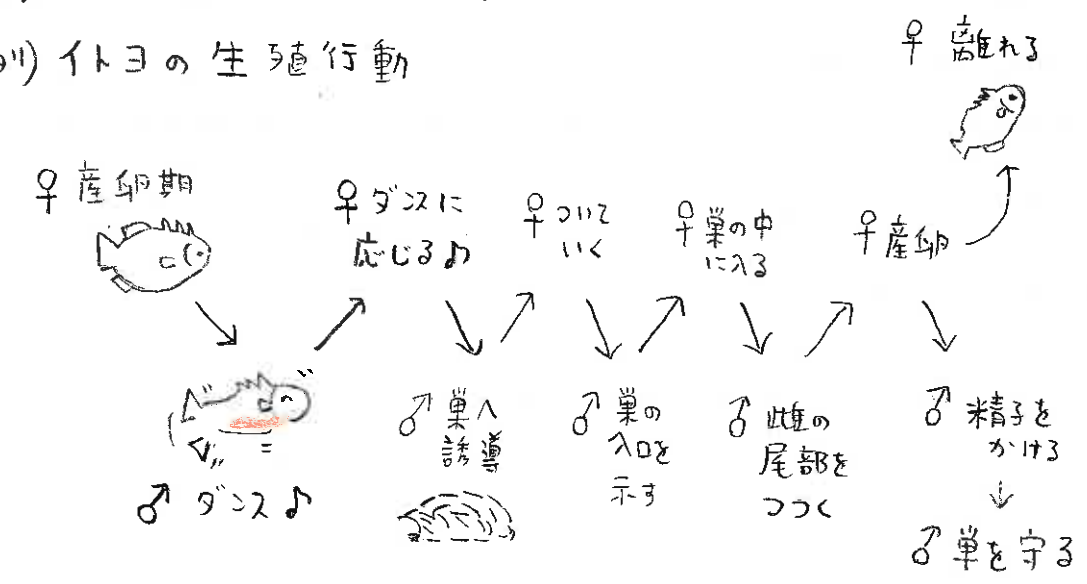 例) イトヨの生殖行動
♀ 離れる
♀ 産卵期
♀ ダンスに
応じる♪
♀ ついて
いく
♀ 巣の中
に入る
♀ 産卵
♂ ダンス♪
♂ 巣へ
誘導
♂ 巣の
入口を
示す
♂ 雌の
尾部を
つつく
♂ 精子を
かける
↓
♂ 巣を守る